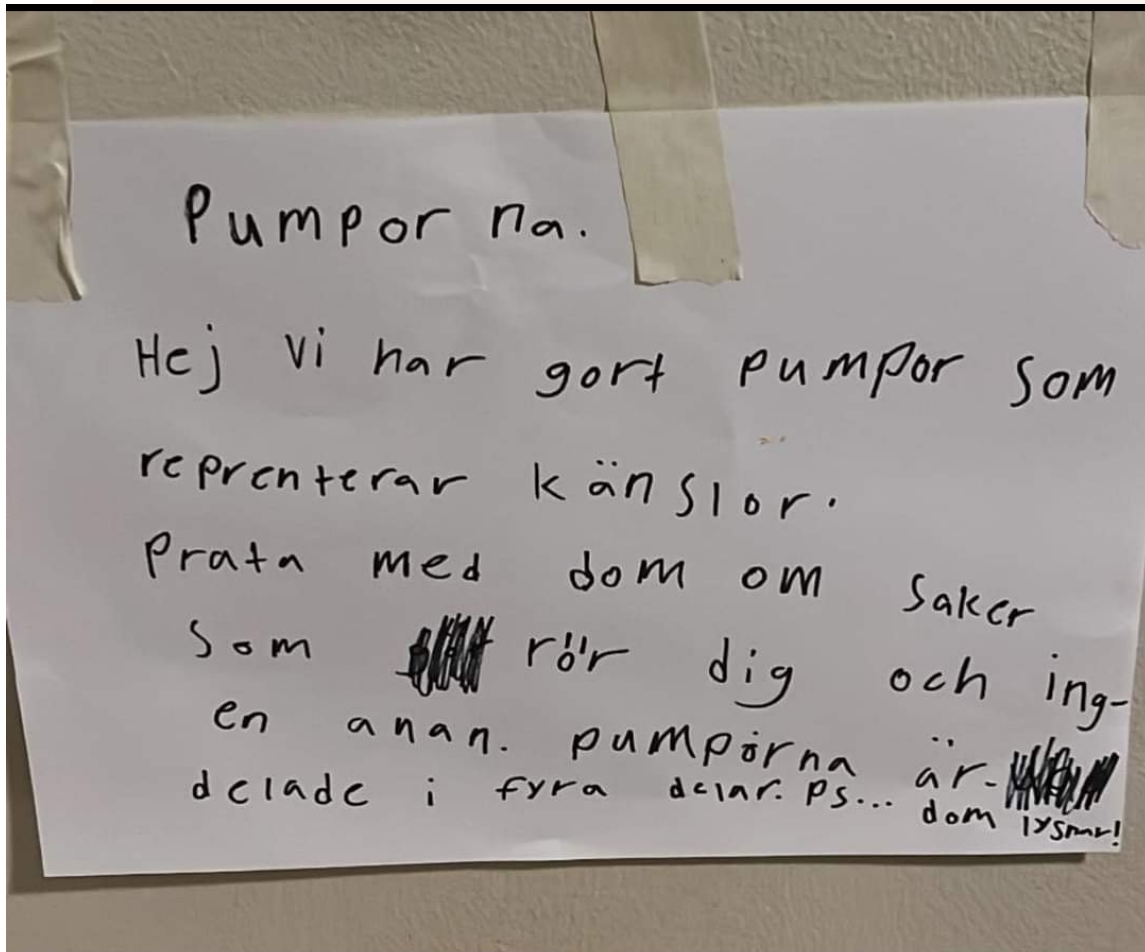 Pumpor na.
Hej vi har gort pumpor som
reprenterar känslor.
Prata med dom om saker
som rör dig och ing-
en anan. pumporna är-
delade i fyra delar. Ps... dom